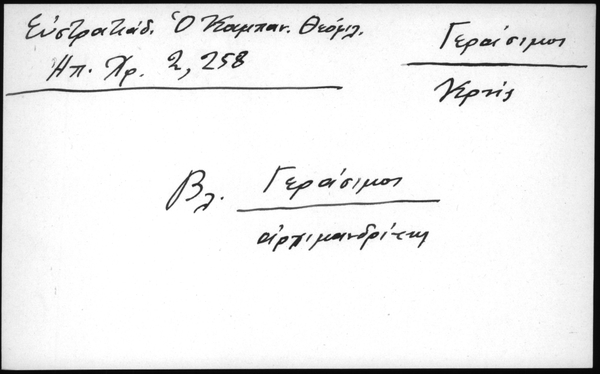 Εὐστρατιάδ. Ὁ Καμπαν. Θεόφιλ.
Ηπ. Χρ. 2, 258
Γεράσιμος
Βλ. Γεράσιμος
ἀρχιμανδρίτης